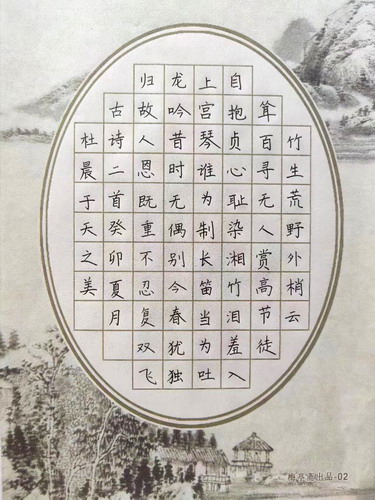 竹生荒野外梢云
耸百寻无人赏高节徒
自抱贞心耻染湘竹泪羞入
上宫琴谁为制长笛当为吐
龙吟昔时无偶别今春犹独
归故人恩既重不忍复双飞
古诗二首癸卯夏月
杜晨于天之美